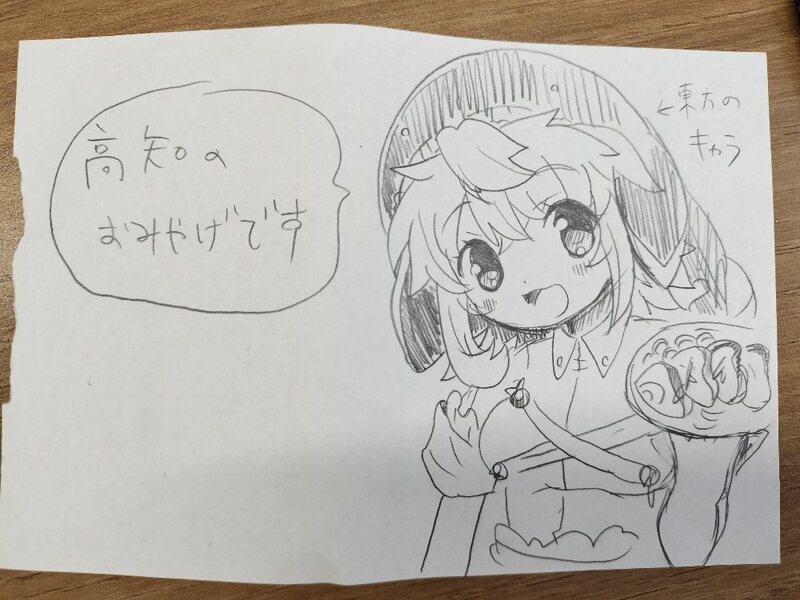 高知の
おみやげです
←東方の
キャラ